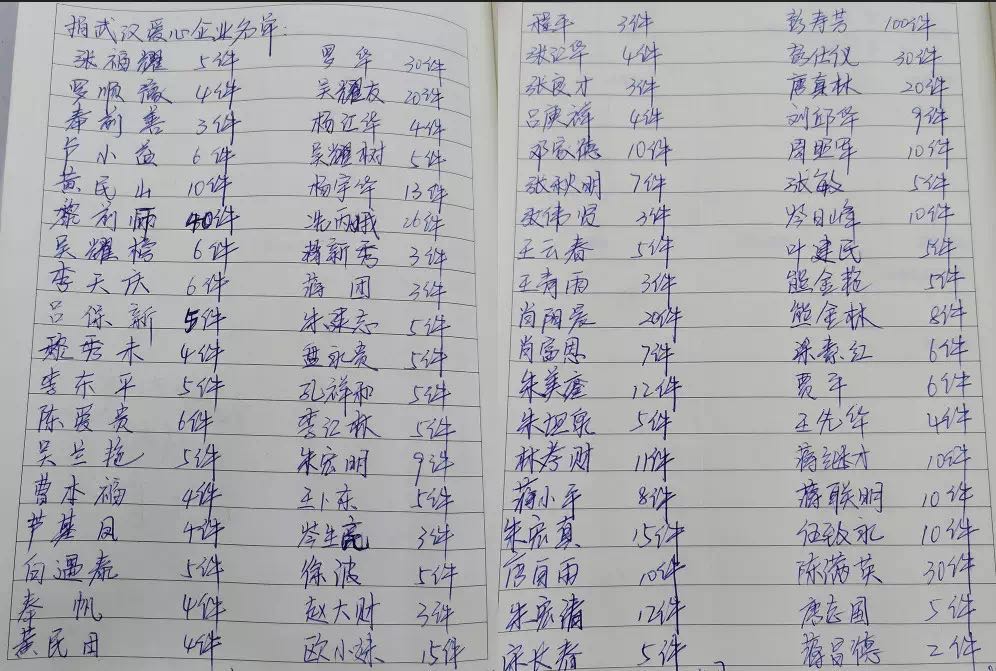 捐武汉爱心企业名单:
张福耀 5件 罗华 30件
罗顺豫 4件 吴耀友 20件
秦前善 3件 杨江华 4件
卢小益 6件 吴耀树 5件
黄民山 10件 杨宇华 13件
黎前师 40件 冼丙娥 26件
吴耀榜 6件 蒋新秀 3件
李天庆 6件 蒋团 3件
吕保新 5件 朱建志 5件
黎秀未 4件 盘永贵 5件
李东平 5件 孔祥和 5件
陈爱贵 6件 李红林 5件
吴兰艳 5件 朱宏明 9件
曹本福 4件 王小东 5件
芦基凤 4件 岑生亮 3件
向遇泰 5件 徐波 5件
秦帆 4件 赵大财 3件
黄民田 4件 欧小妹 15件
程平 3件 彭寿芳 100件
张江华 4件 彭仕仪 30件
张良才 3件 唐真林 20件
吕庚祥 4件 刘邱华 9件
邓家德 10件 周照军 10件
张秋明 7件 张敏 5件
伟贤 3件 岑日峰 10件
王云春 5件 叶建民 5件
王青雨 3件 熊金艳 5件
肖阳辰 20件 熊金林 8件
肖富恩 7件 梁素红 6件
朱美 12件 贾平 6件
朱坦泉 5件 王先华 4件
林孝财 11件 蒋继才 10件
蒋小平 8件 蒋联明 10件
朱宏真 15件 伍致永 10件
唐有雨 10件 陈满英 30件
朱宏清 12件 唐志国 5件
宋长春 5件 蒋昌德 2件